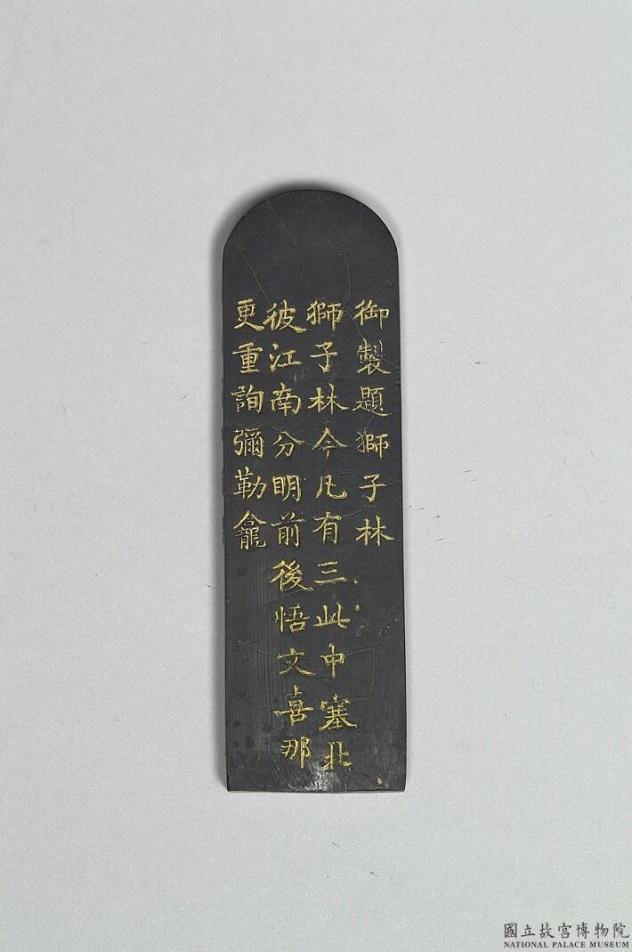 御製題獅子林
獅子林今凡有三此中塞北
彼江南分明前後悟文喜那
更重詢彌勒龕
國立故宮博物院
NATIONAL PALACE MUSEUM